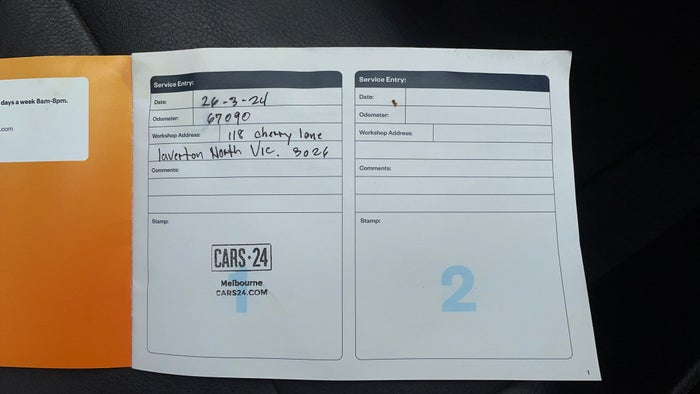 days a week 8am-8pm.
.com
Service Entry:
Date: 26-3-24
Odometer: 67090
Workshop Address: 118 cherry lane
laverton North Vic. 3026
Comments:
Stamp:
CARS·24
1
Melbourne
CARS24.COM
Service Entry:
Date:
Odometer:
Workshop Address:
Comments:
Stamp:
2
1